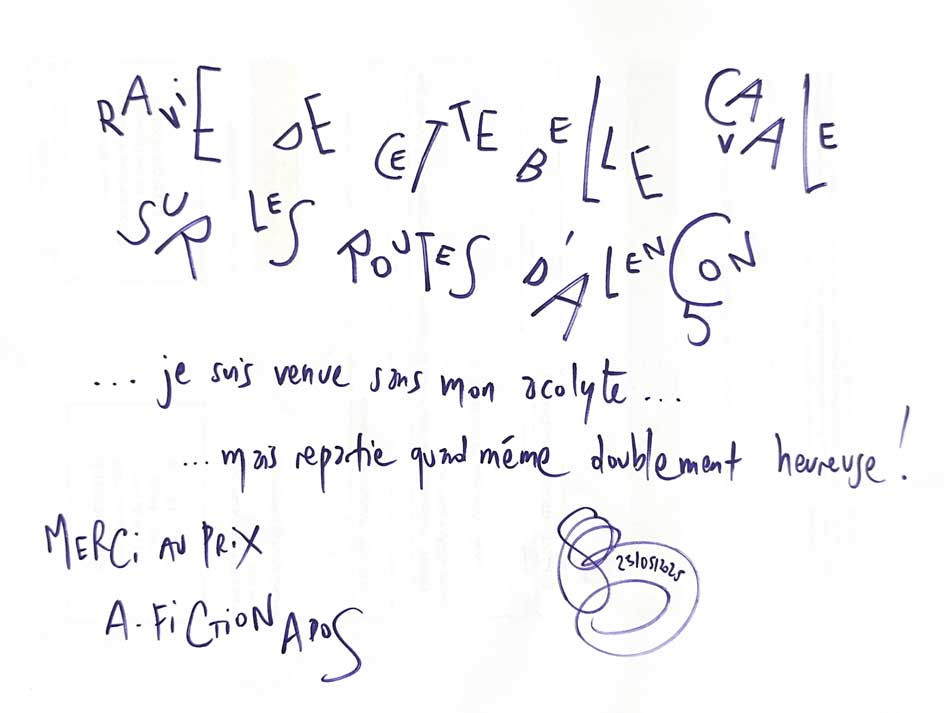 RAViE DE CETTE BELLE CAVALE
SUR LES ROUTES D'ALENÇON
... je suis venue sans mon acolyte ...
... mais repartie quand même doublement heureuse !
MERCi AU PRiX
A-FiCTiONADOS
23/05/2025